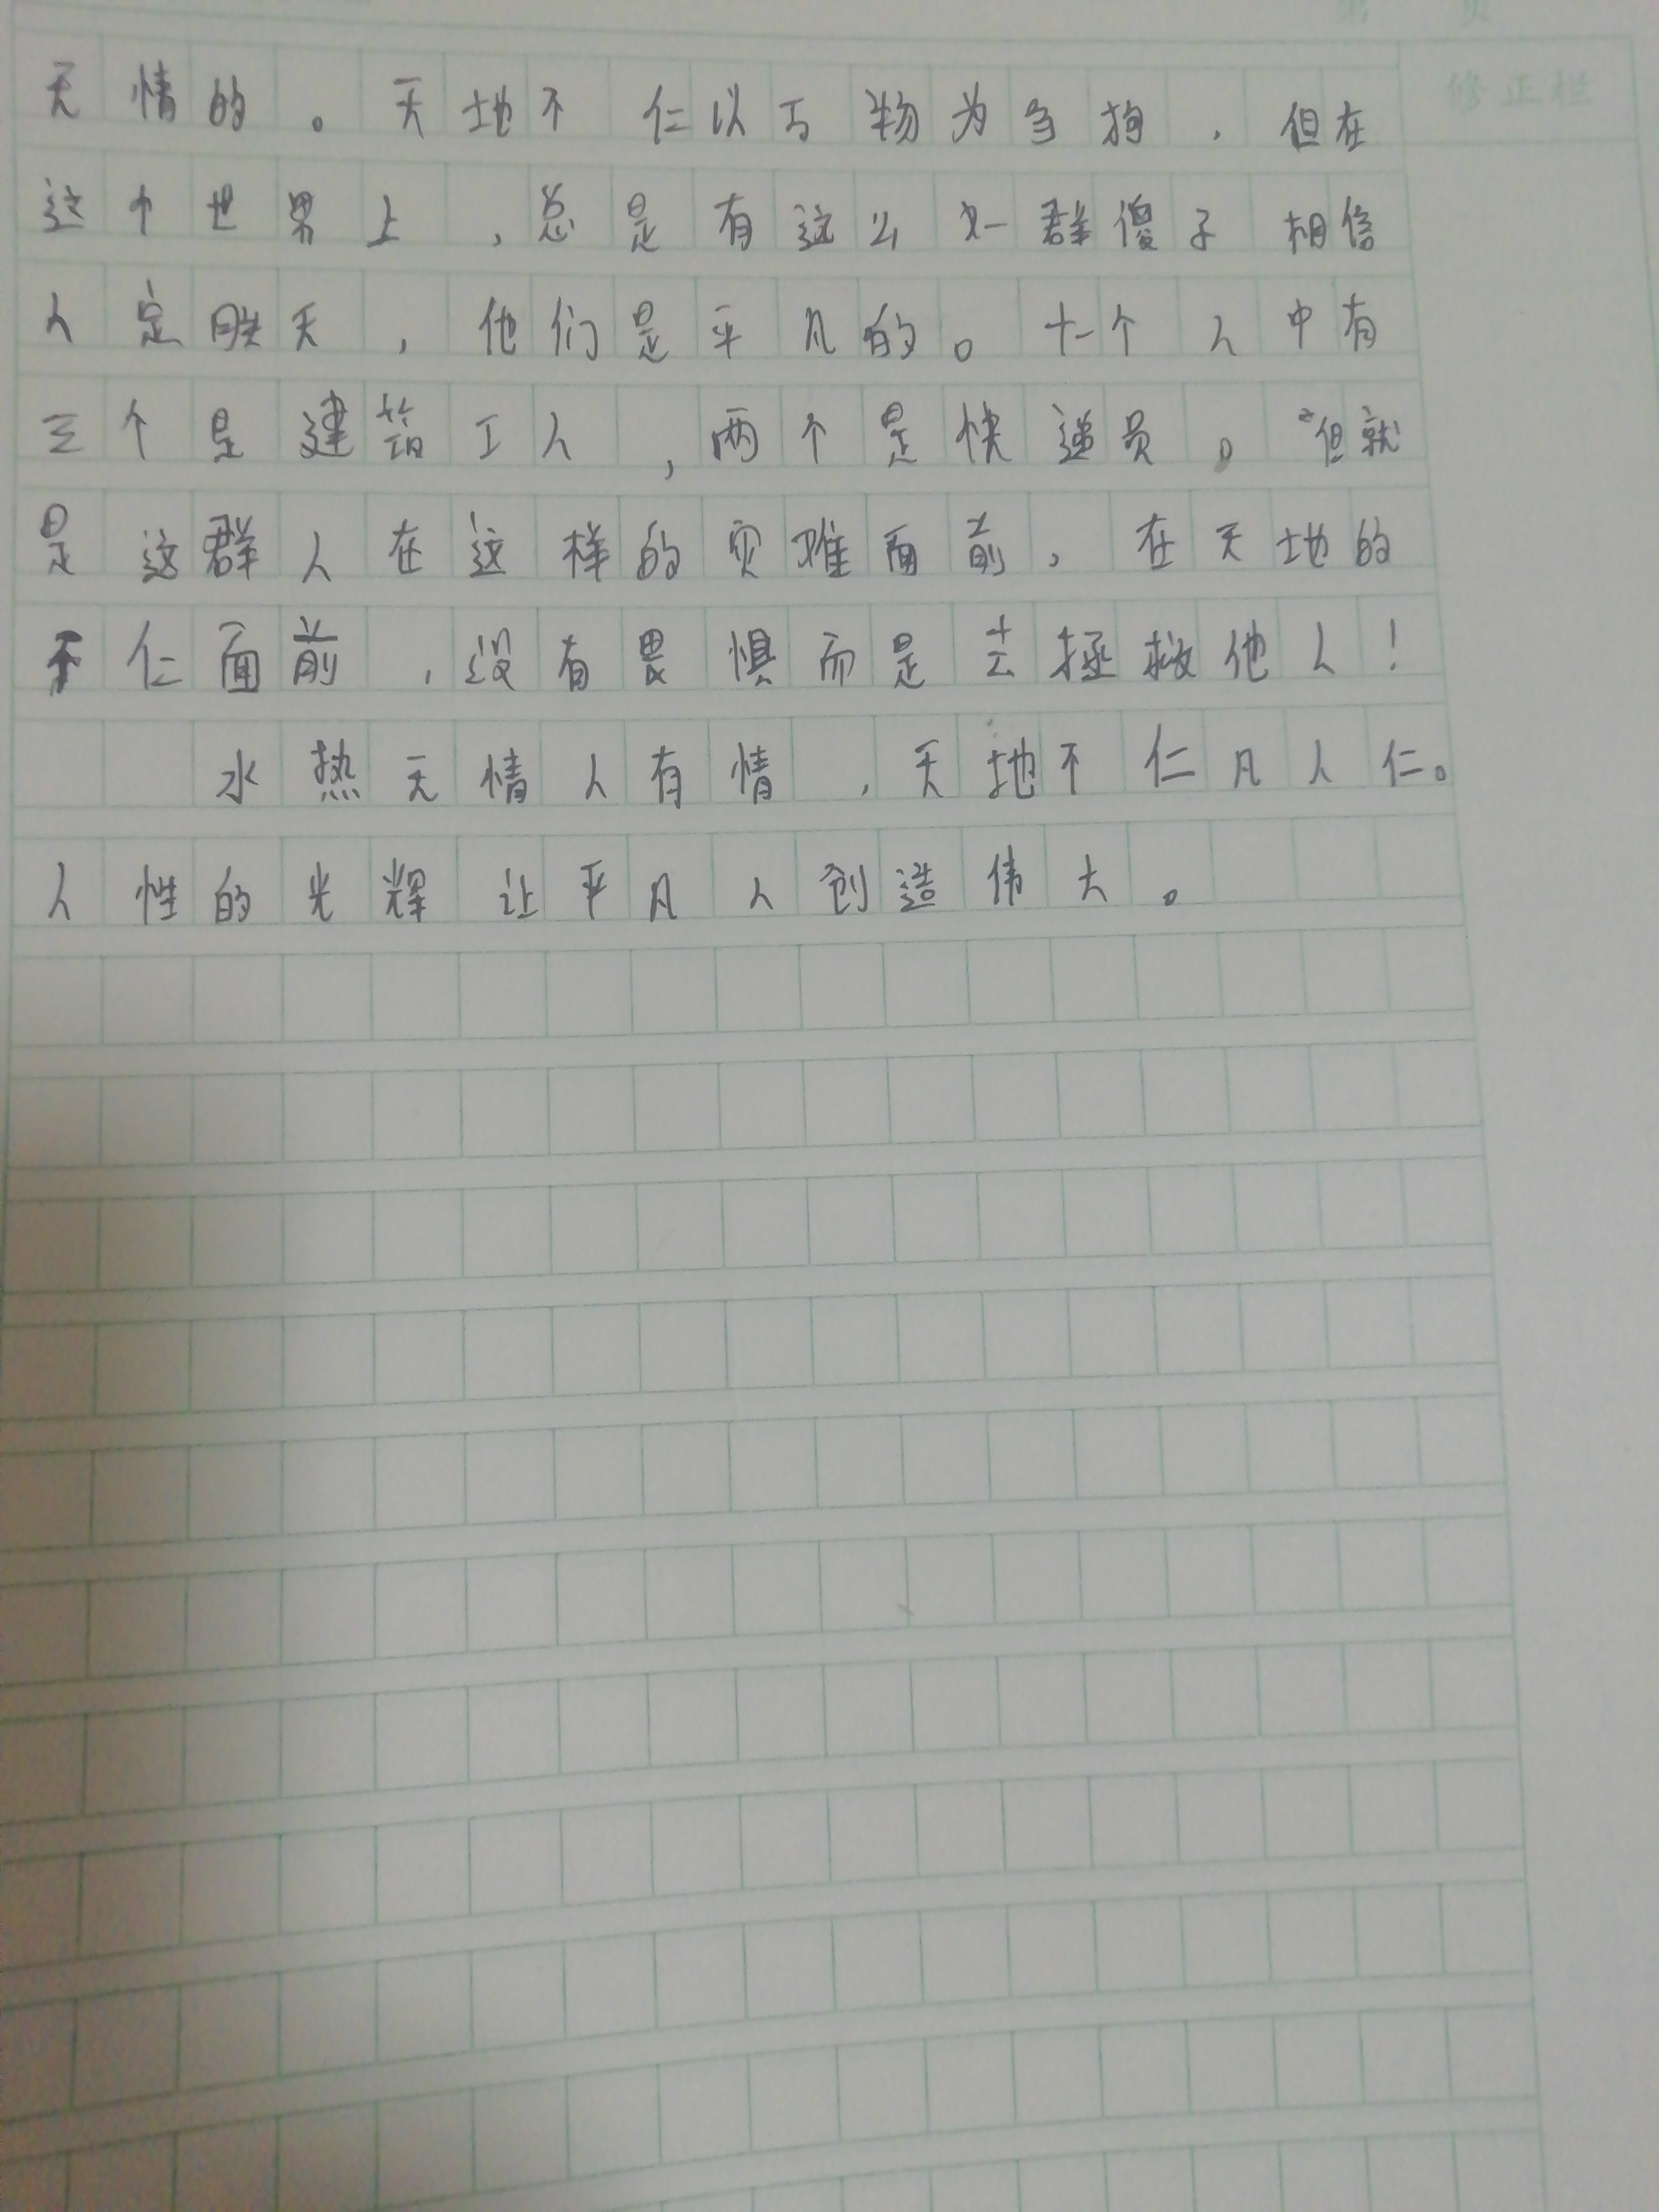 第 页
修正栏
无情的。天地不仁以万物为刍狗，但在
这个世界上，总是有这么一群傻子相信
人定胜天，他们是平凡的。十一个人中有
三个是建筑工人，两个是快递员。但就
是这群人在这样的灾难面前，在天地的
不仁面前，没有畏惧而是去拯救他人！
水热无情人有情，天地不仁凡人仁。
人性的光辉让平凡人创造伟大。